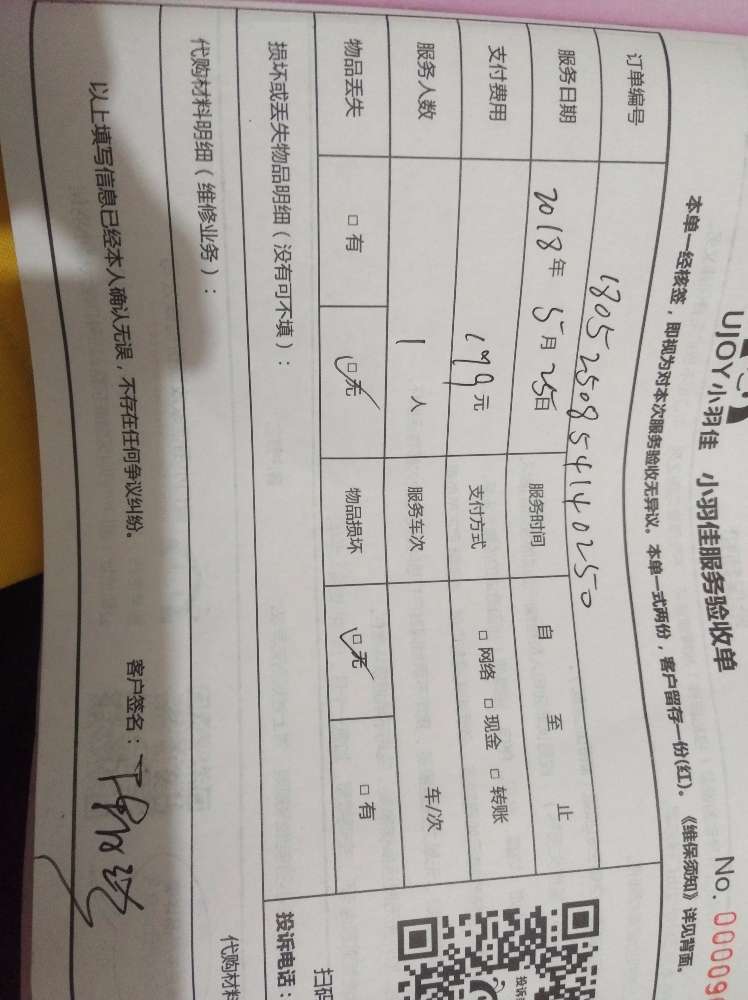 UJOY小羽佳 小羽佳服务验收单 No. 00009
本单一经核签，即视为对本次服务验收无异议。本单一式两份，客户留存一份(红)。《维保须知》详见背面。
订单编号 1805250854140250
服务日期 2018年 5月 25日 服务时间 自 至 止
支付费用 199元 支付方式 □ 网络 □ 现金 □ 转账
服务人数 1 人 服务车次 车/次
物品丢失 □ 有 □ 无 物品损坏 □ 无 □ 有
损坏或丢失物品明细（没有可不填）： 投诉电话：
代购材料明细（维修业务）： 代购材料
以上填写信息已经本人确认无误，不存在任何争议纠纷。 客户签名：
扫码
投诉